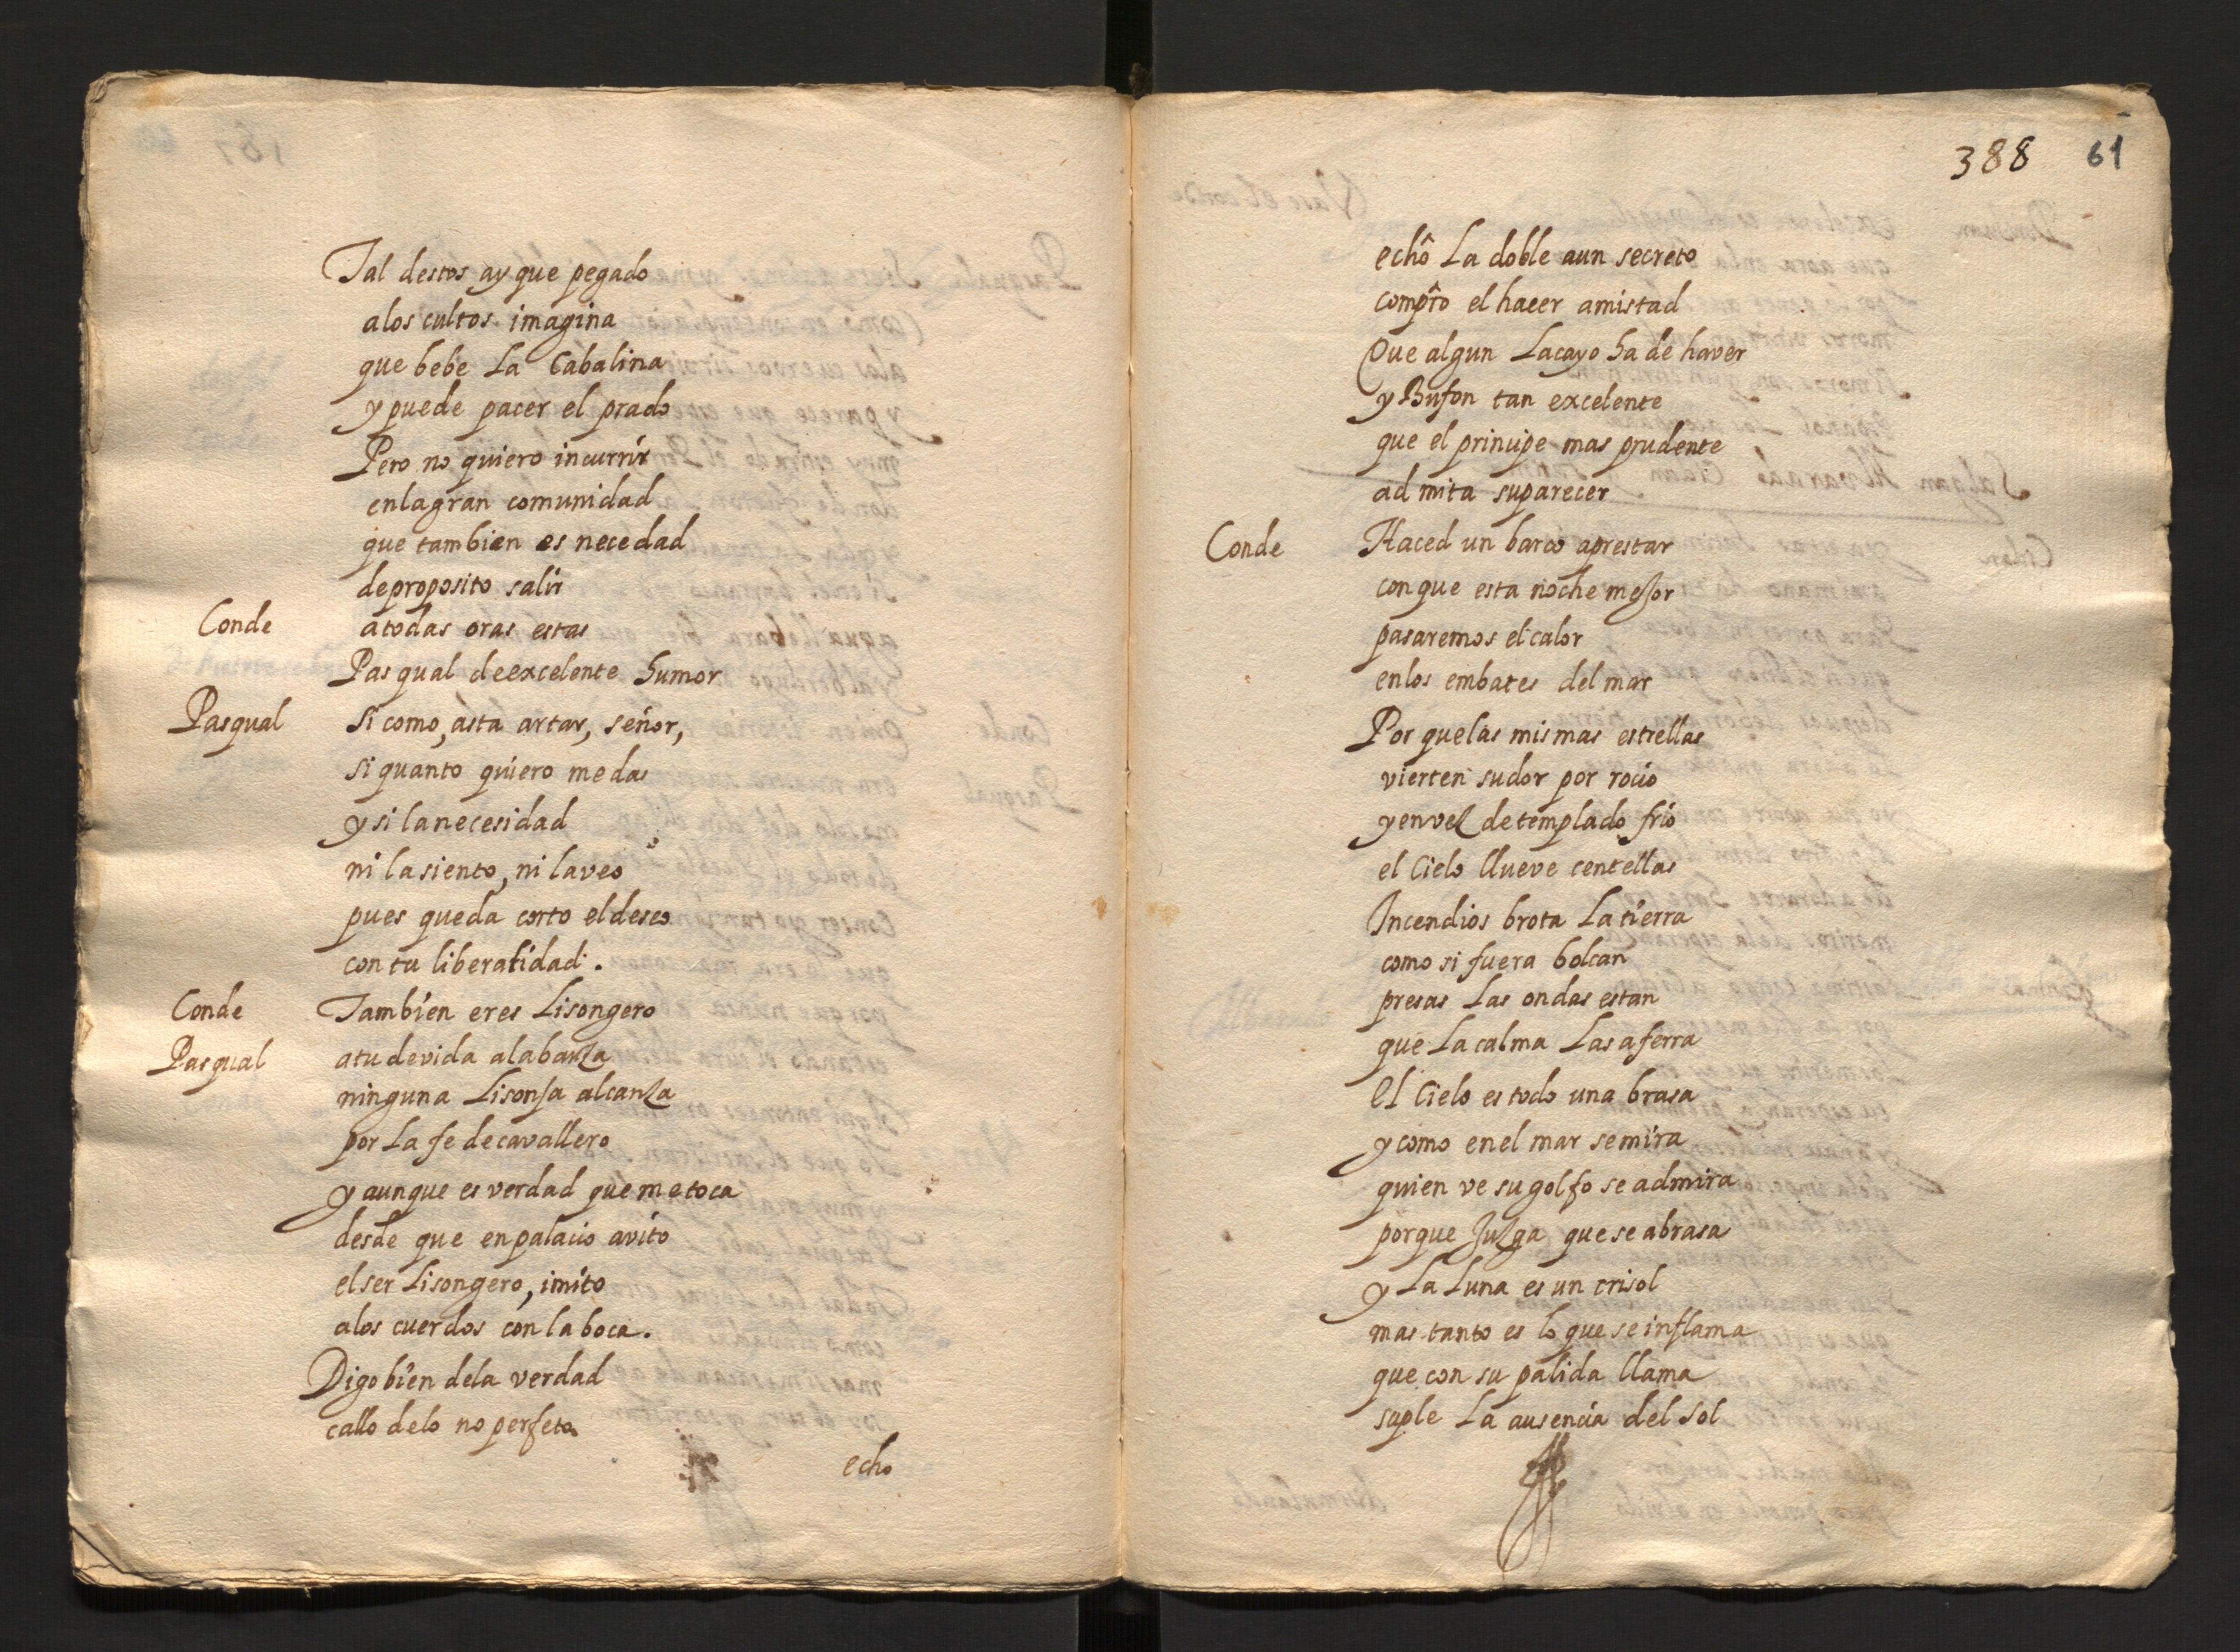 Tal destos ay que pegado
alos cultos imagina
que bebe La Cabalina
y puede pacer el prado
Pero no quiero incurrir
enlagran comunidad
que tambien es necedad
deproposito salir
Conde atodas oras estas
Pasqual deexcelente humor
Pasqual Si como, asta artar, señor,
si quanto quiero medas
y si lanecesidad
ni lasiento, ni laveo
pues queda corto eldeseo
contu liberalidad.
Conde Tambien eres Lisongero
Pasqual atudevida alabanza
ninguna Lisonja alcanza
por La fe decavallero
y aunque es verdad que metoca
desde que enpalacio avito
elser Lisongero, imito
alos cuerdos conlaboca.
Digobien dela verdad
callo delo no perfeto
echo
388 61
echô La doble aun secreto
compro el hacer amistad
Que algun Lacayo ha de haver
y Bufon tan excelente
que el principe mas prudente
admita suparecer
Conde Haced un barco aprestar
conque esta noche mejor
pasaremos el calor
enlos embates del mar
Por quelas mismas estrellas
vierten sudor por rocio
yenvez detemplado frio
el Cielo llueve centellas
Incendios brota La tierra
como si fuera bolcan
presas Las ondas estan
que La calma Las aferra
El Cielo es todo una brasa
y como enel mar semira
quien ve su golfo se admira
porque Juzga que se abrasa
y La Luna es un crisol
mas tanto es lo que se inflama
que con su palida llama
suple La ausencia del sol